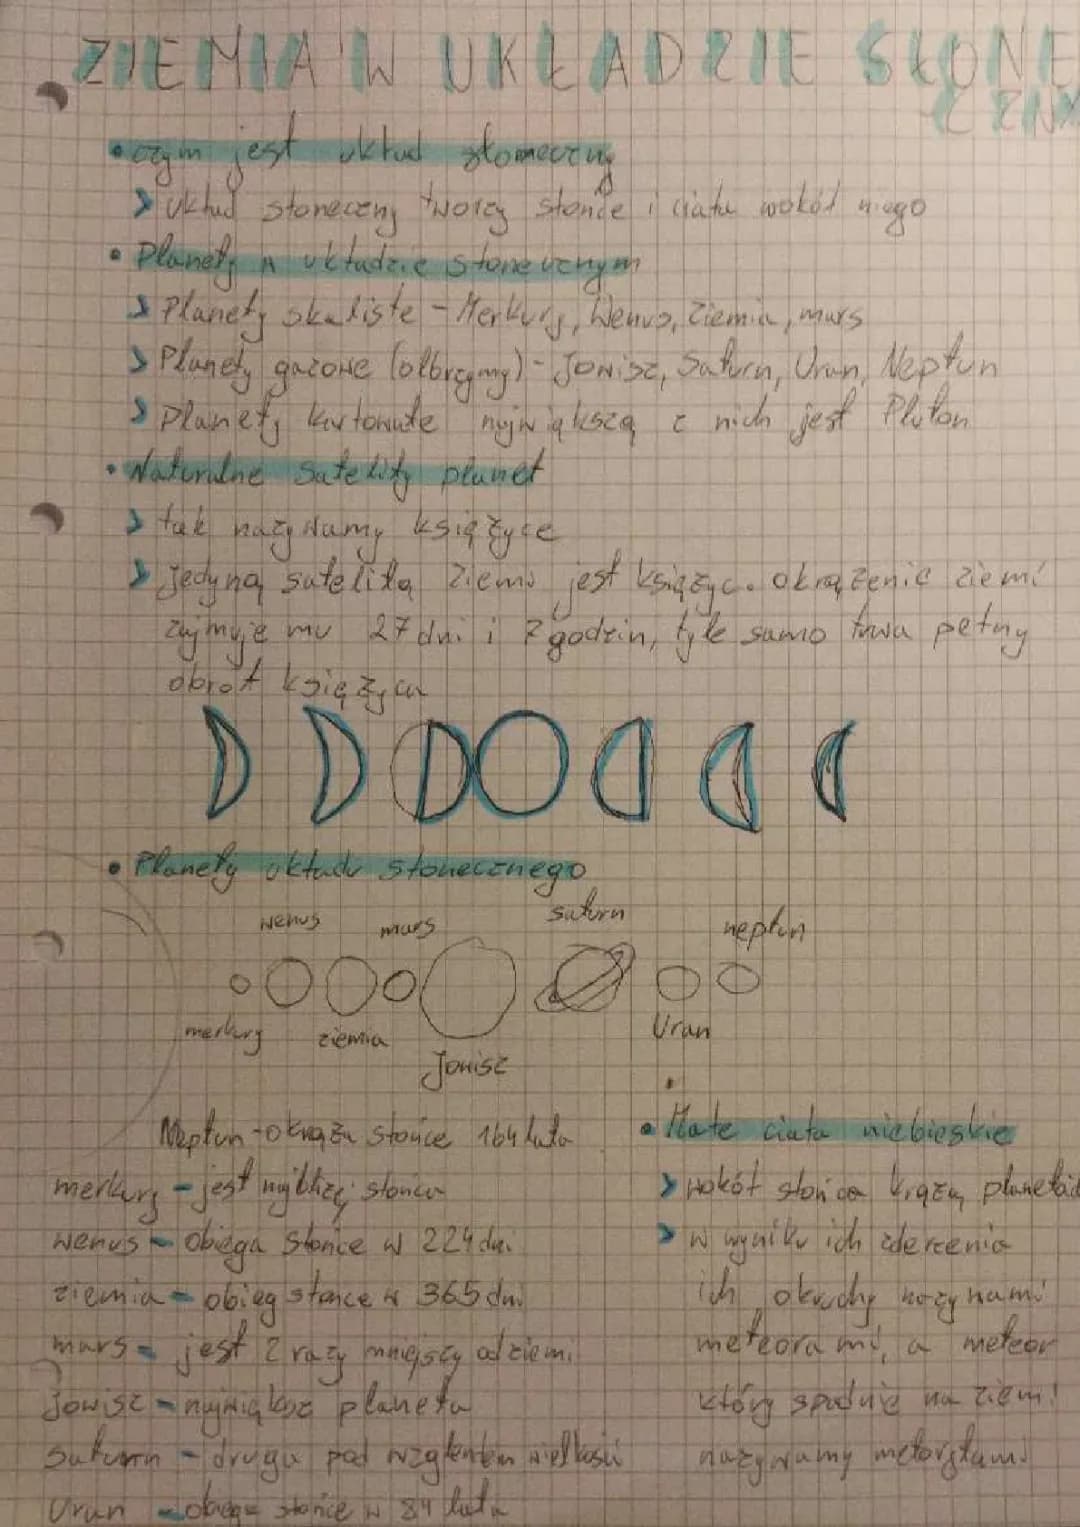 ZIEMIA W UKŁADZIE SŁONE
CZNY
• czym jest układ słoneczny
> układ słoneczny tworzy słońce i ciała wokół niego
• Planety w układzie słonecznym
> Planety skaliste - Merkury, Wenus, Ziemia, mars
> Planety gazowe (olbrzymy) - Jowisz, Saturn, Uran, Neptun
> Planety karłowate największą z nich jest Pluton
• Naturalne Satelity planet
> tak nazywamy księżyce
> jedyną satelitą Ziemi jest księżyc. okrążenie ziemi
zajmuje mu 27 dni i 7 godzin, tyle samo trwa pełny
obrót księżyca
• Planety układu słonecznego
wenus mars saturn neptun
merkury ziemia Jowisz Uran
Neptun - okrąża słońce 164 lata
merkury - jest najbliżej słońca
wenus - obiega słońce w 224 dni
ziemia - obieg słońce w 365 dni
mars - jest 2 razy mniejszy od ziemi
jowisz - największa planeta
saturn - druga pod względem wielkości
Uran - obiega słońce w 84 lata
• Małe ciała niebieskie
> wokół słońca krążą planetoid
> w wyniku ich zderzenia
ich okruchy nazynami
meteorami, a meteor
który spadnie na ziemi
nazywamy metorytami